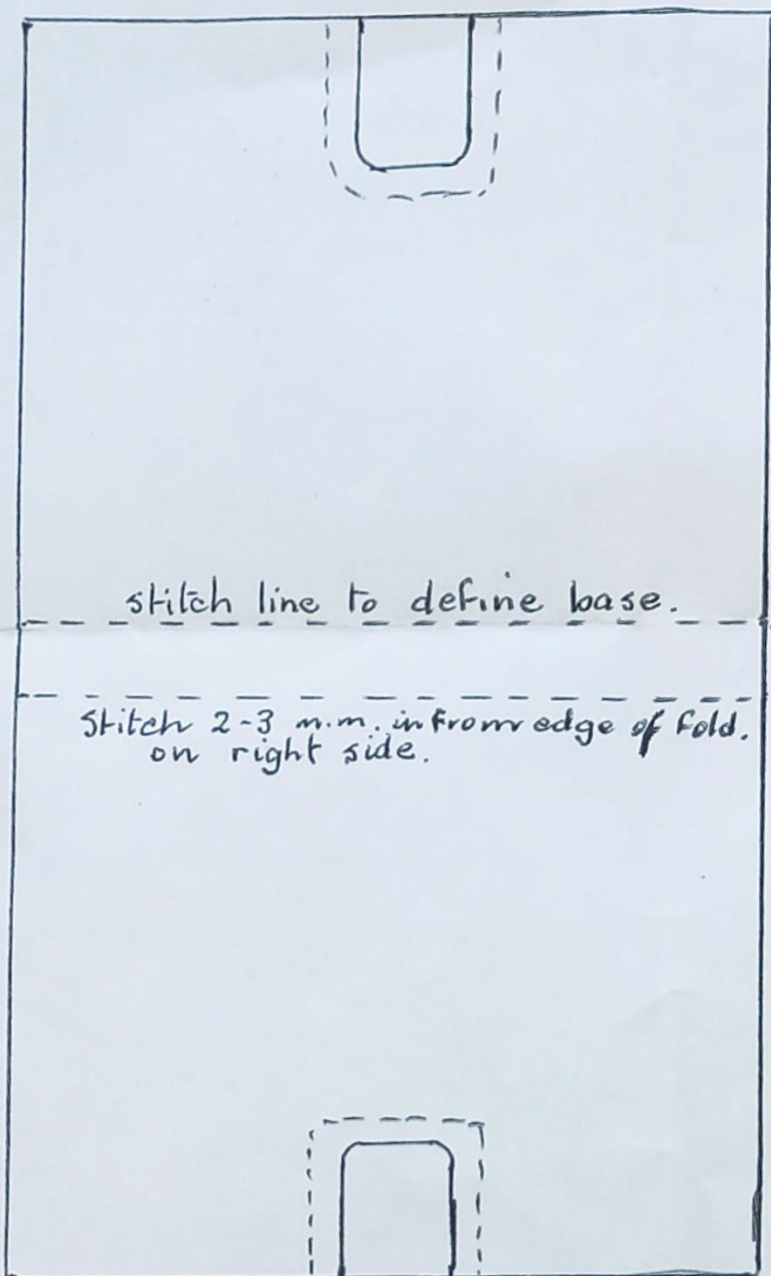 stitch line to define base.
Stitch 2-3 m.m. in from edge of fold.
on right side.